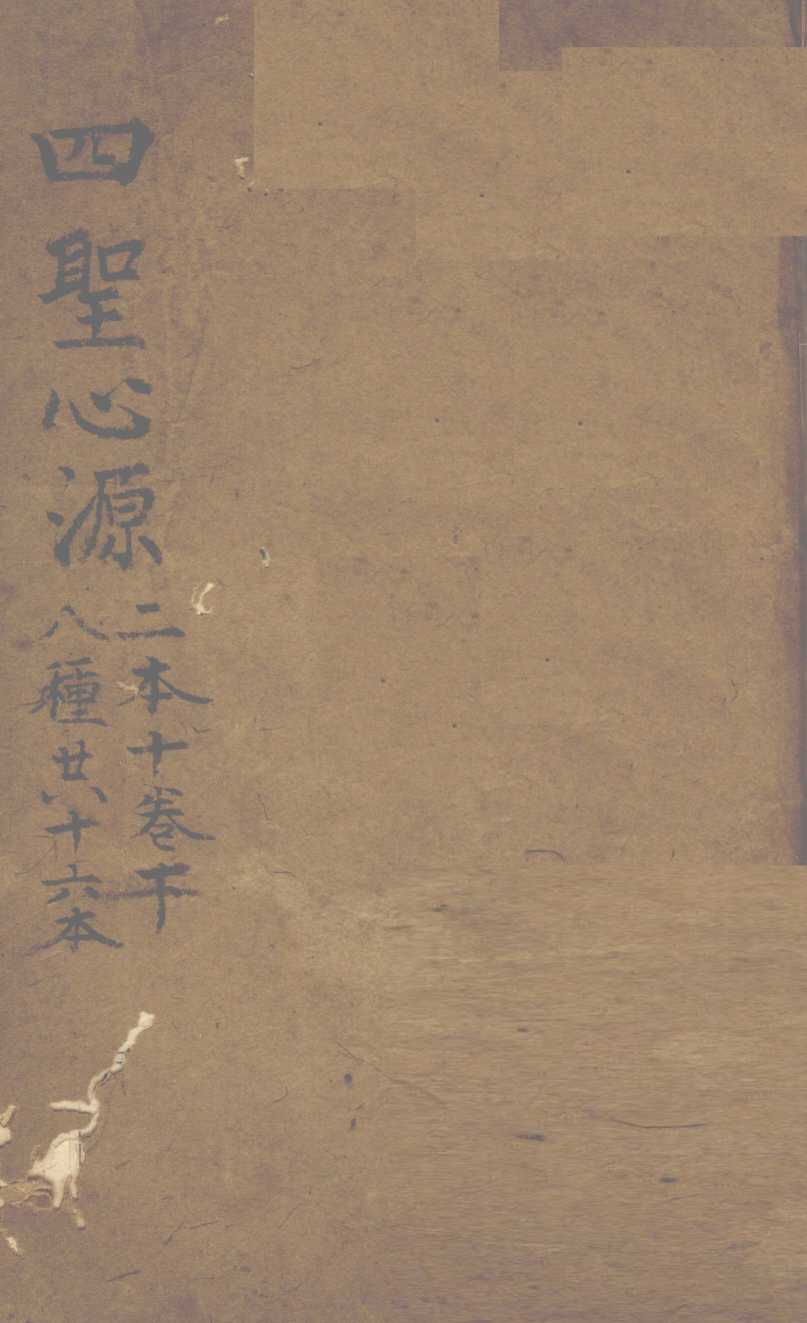 四聖心源
二本十卷下
八種共六十六本